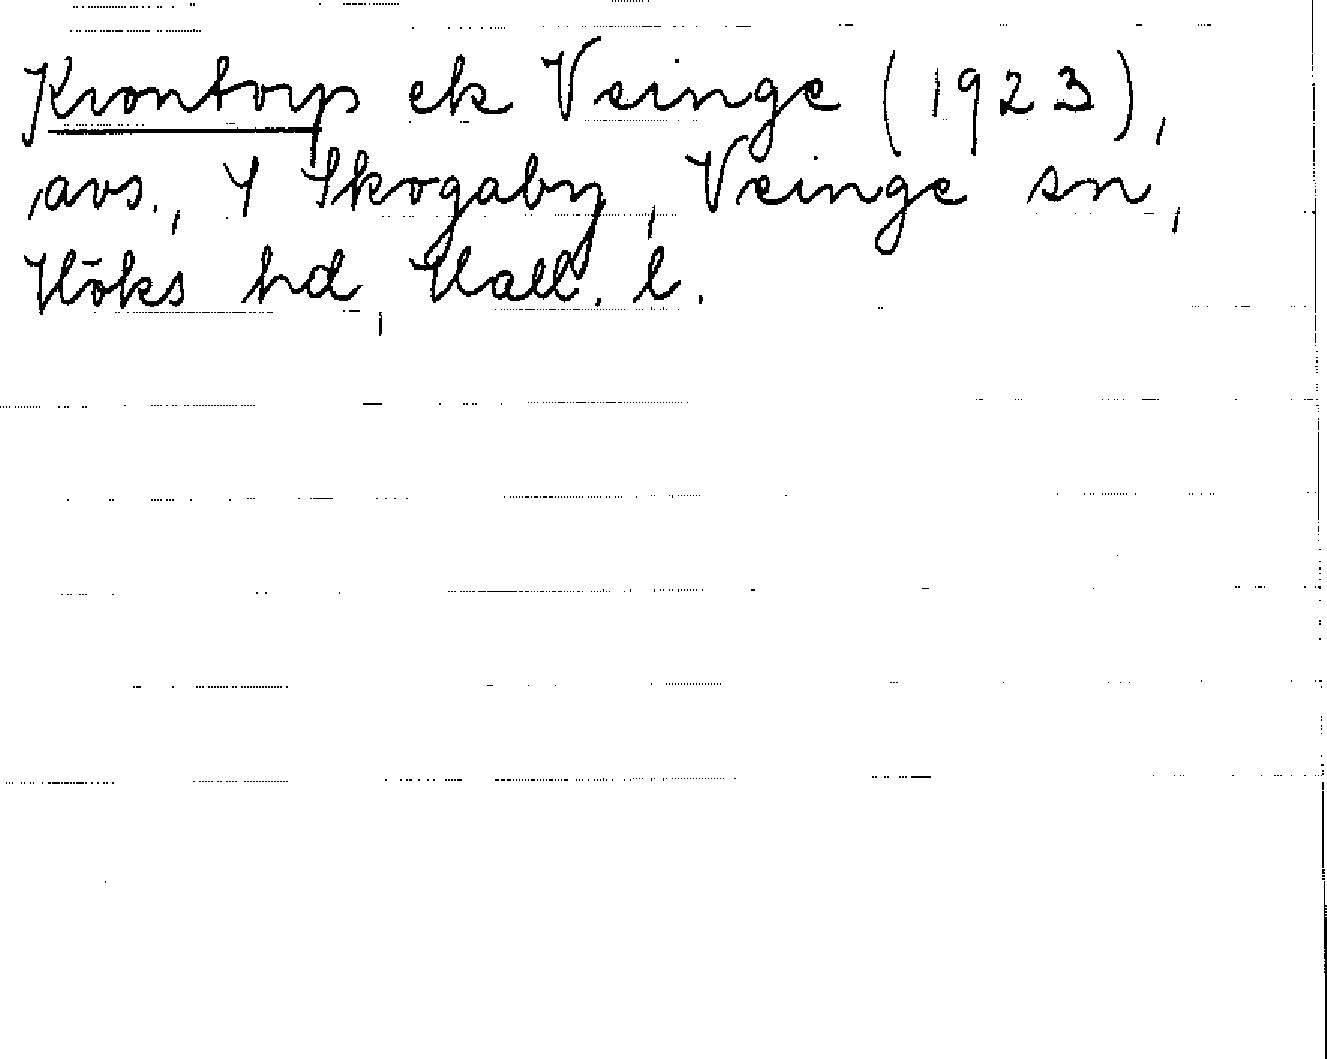 Krontorp ek Veinge (1923),
avs., Y Skogaby, Veinge sn,
Höks hd, Hall. l.